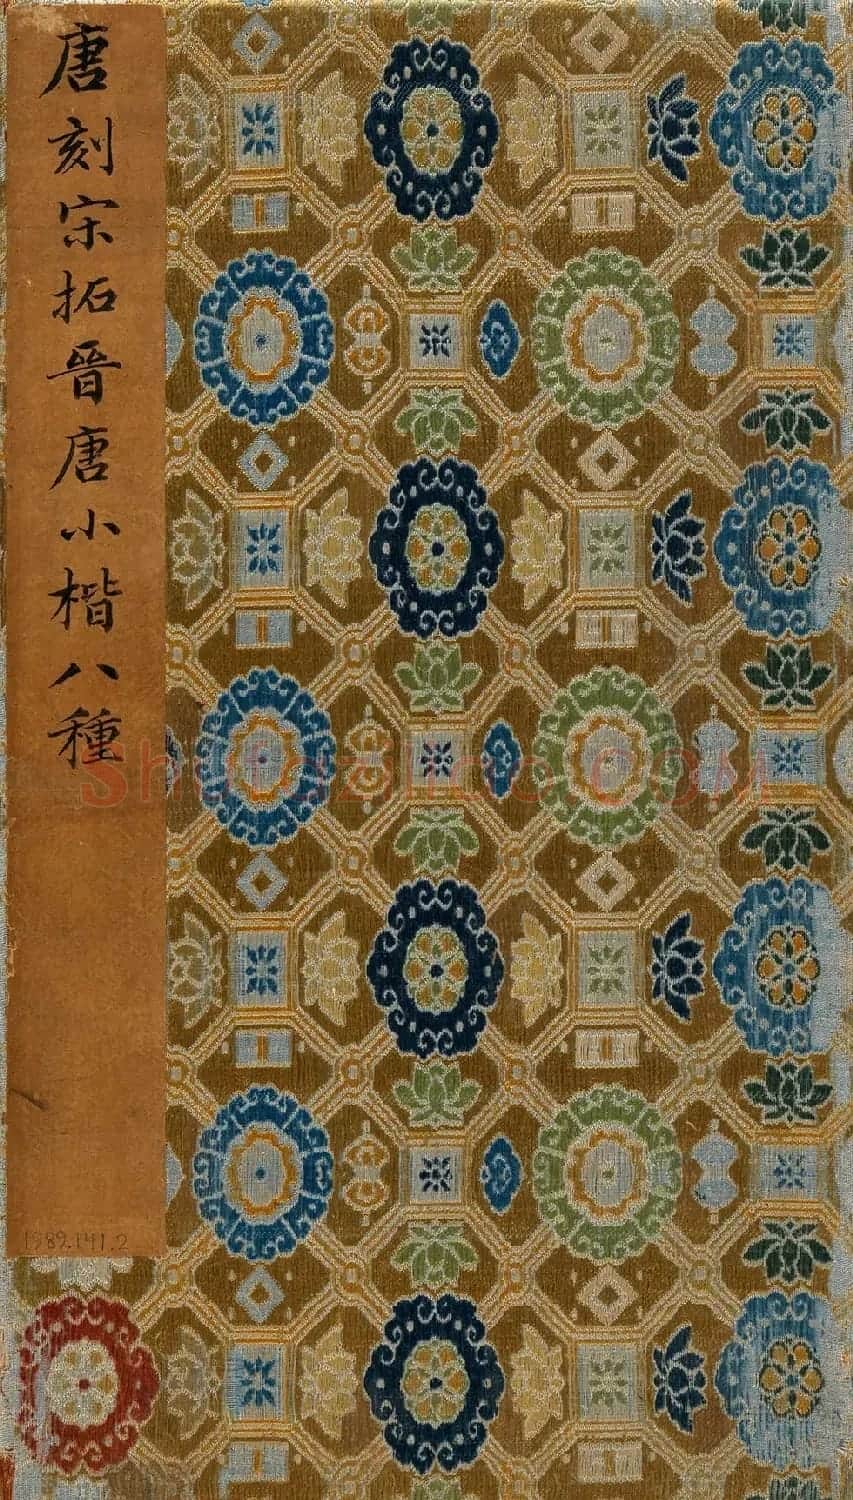 唐刻宋拓晉唐小楷八種
1989.141.2
Shufaziliao.COM